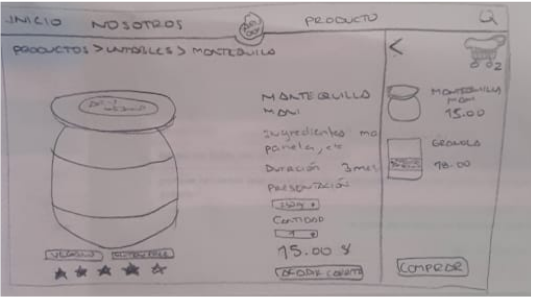 INICIO NOSOTROS PRODUCTO
PRODUCTOS > UNTABLES > MANTEQUILLA
MANTEQUILLA
MANI
Ingredientes ma
panela, etc
Duración 3 mes
PRESENTACIÓN
CANTIDAD
1
15.00 $
2
MANTEQUILLA
MANI
15.00
GRANOLA
18.00
COMPRAR